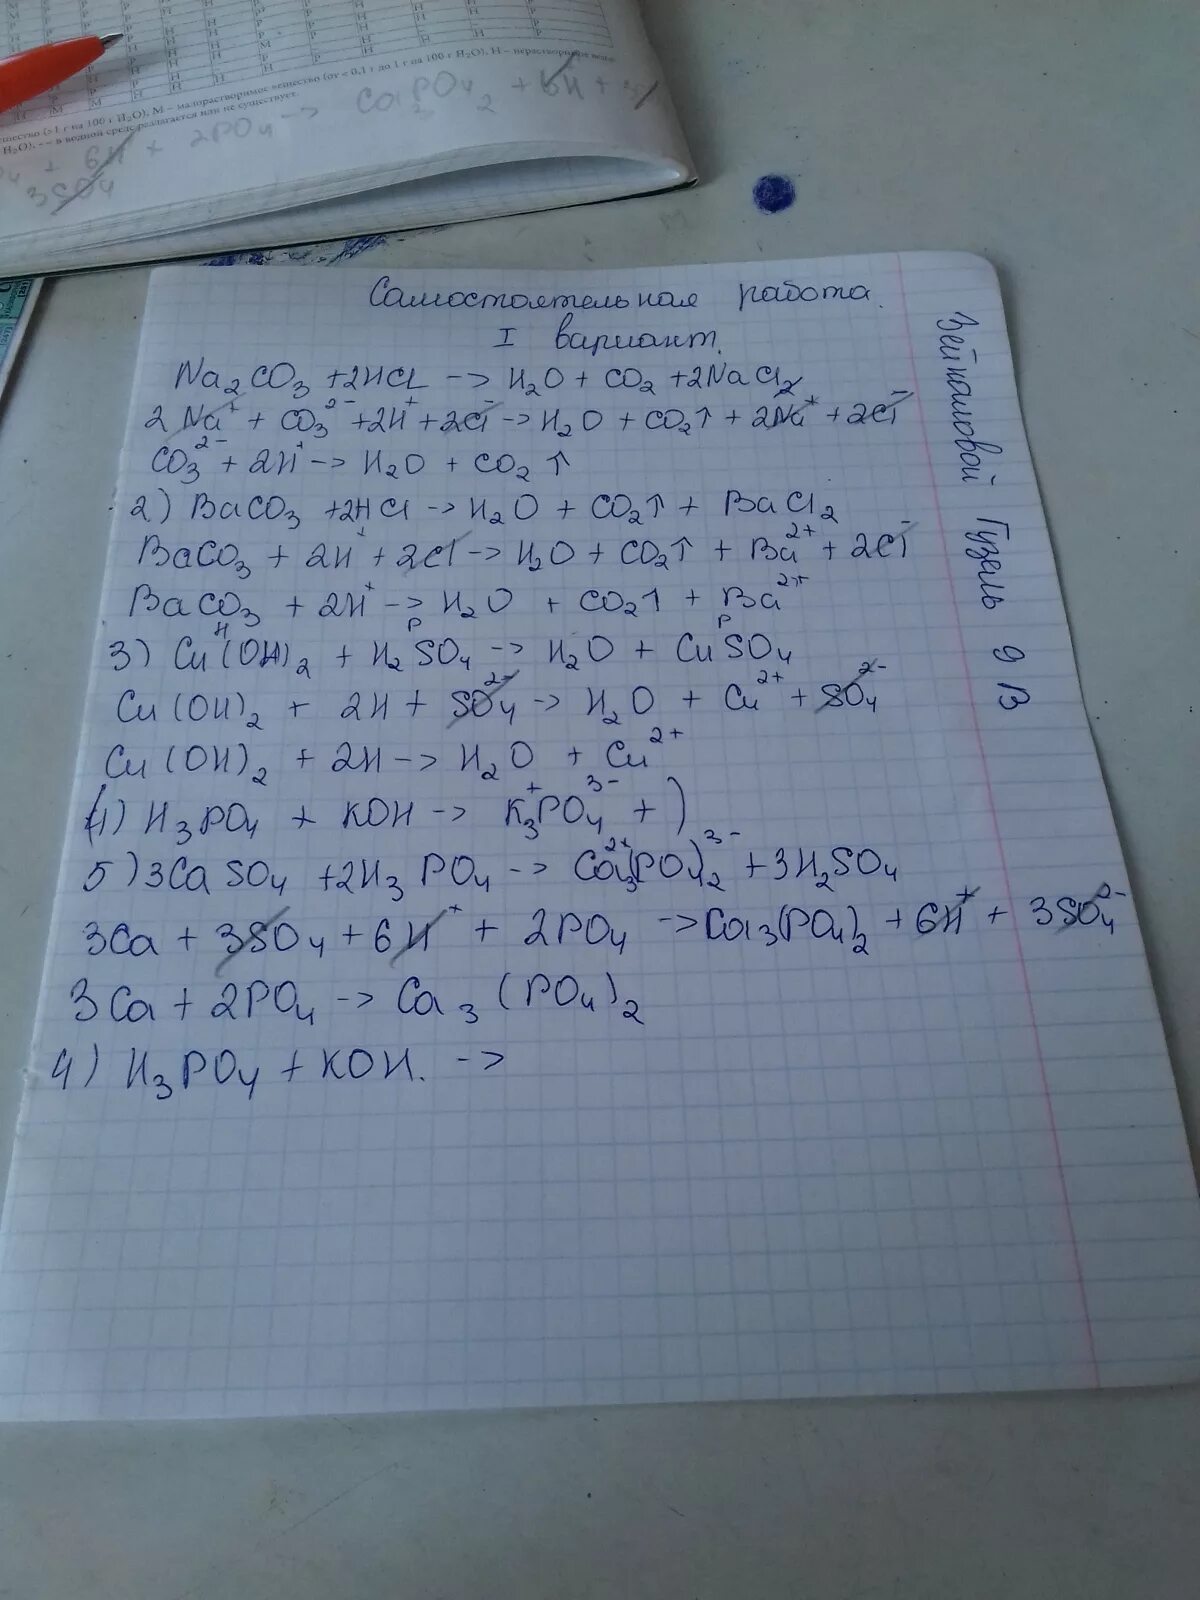 Р Н Н Н Н
М М Р Н Н Н
H₂O), М – малорастворимое вещество (от < 0,1 г до 1 г на 100 г H₂O), Н – нерастворимое
в водной среде разлагается или не существует.
+ 6H + 2PO4 → Ca3PO4 2 + 6H +
3SO4
Самостоятельная работа.
I вариант.
Na₂CO₃ + 2HCL → H₂O + CO₂ + 2NaCl₂
2Na⁺ + CO₃²⁻ + 2H⁺ + 2Cl⁻ → H₂O + CO₂↑ + 2Na⁺ + 2Cl⁻
CO₃²⁻ + 2H⁺ → H₂O + CO₂↑
2) BaCO₃ + 2HCl → H₂O + CO₂↑ + BaCl₂
BaCO₃ + 2H⁺ + 2Cl⁻ → H₂O + CO₂↑ + Ba²⁺ + 2Cl⁻
BaCO₃ + 2H⁺ → H₂O + CO₂↑ + Ba²⁺
Н Р Р
3) Cu(OH)₂ + H₂SO₄ → H₂O + CuSO₄
Cu(OH)₂ + 2H + SO₄²⁻ → H₂O + Cu²⁺ + SO₄²⁻
Cu(OH)₂ + 2H → H₂O + Cu²⁺
(4) H₃PO₄ + KOH → K₃⁺PO₄³⁻ + )
5) 3CaSO₄ + 2H₃PO₄ → Ca₃²⁺(PO₄)₂³⁻ + 3H₂SO₄
3Ca + 3SO₄ + 6H⁺ + 2PO₄ → Ca₃(PO₄)₂ + 6H⁺ + 3SO₄²⁻
3Ca + 2PO₄ → Ca₃(PO₄)₂
4) H₃PO₄ + KOH. →
Зейналовой Гузель 9 В